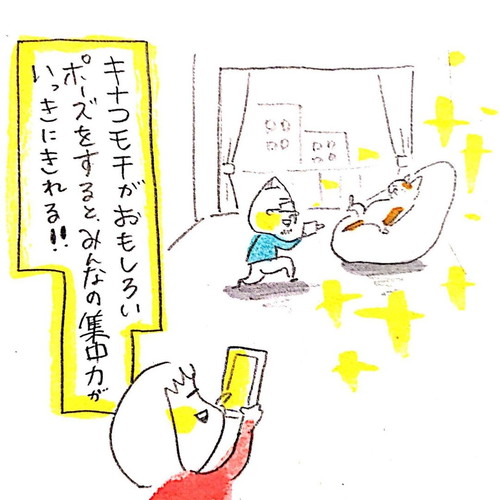 キナコモチがおもしろい
ポーズをすると、みんなの集中力が
いっきにきれる!!